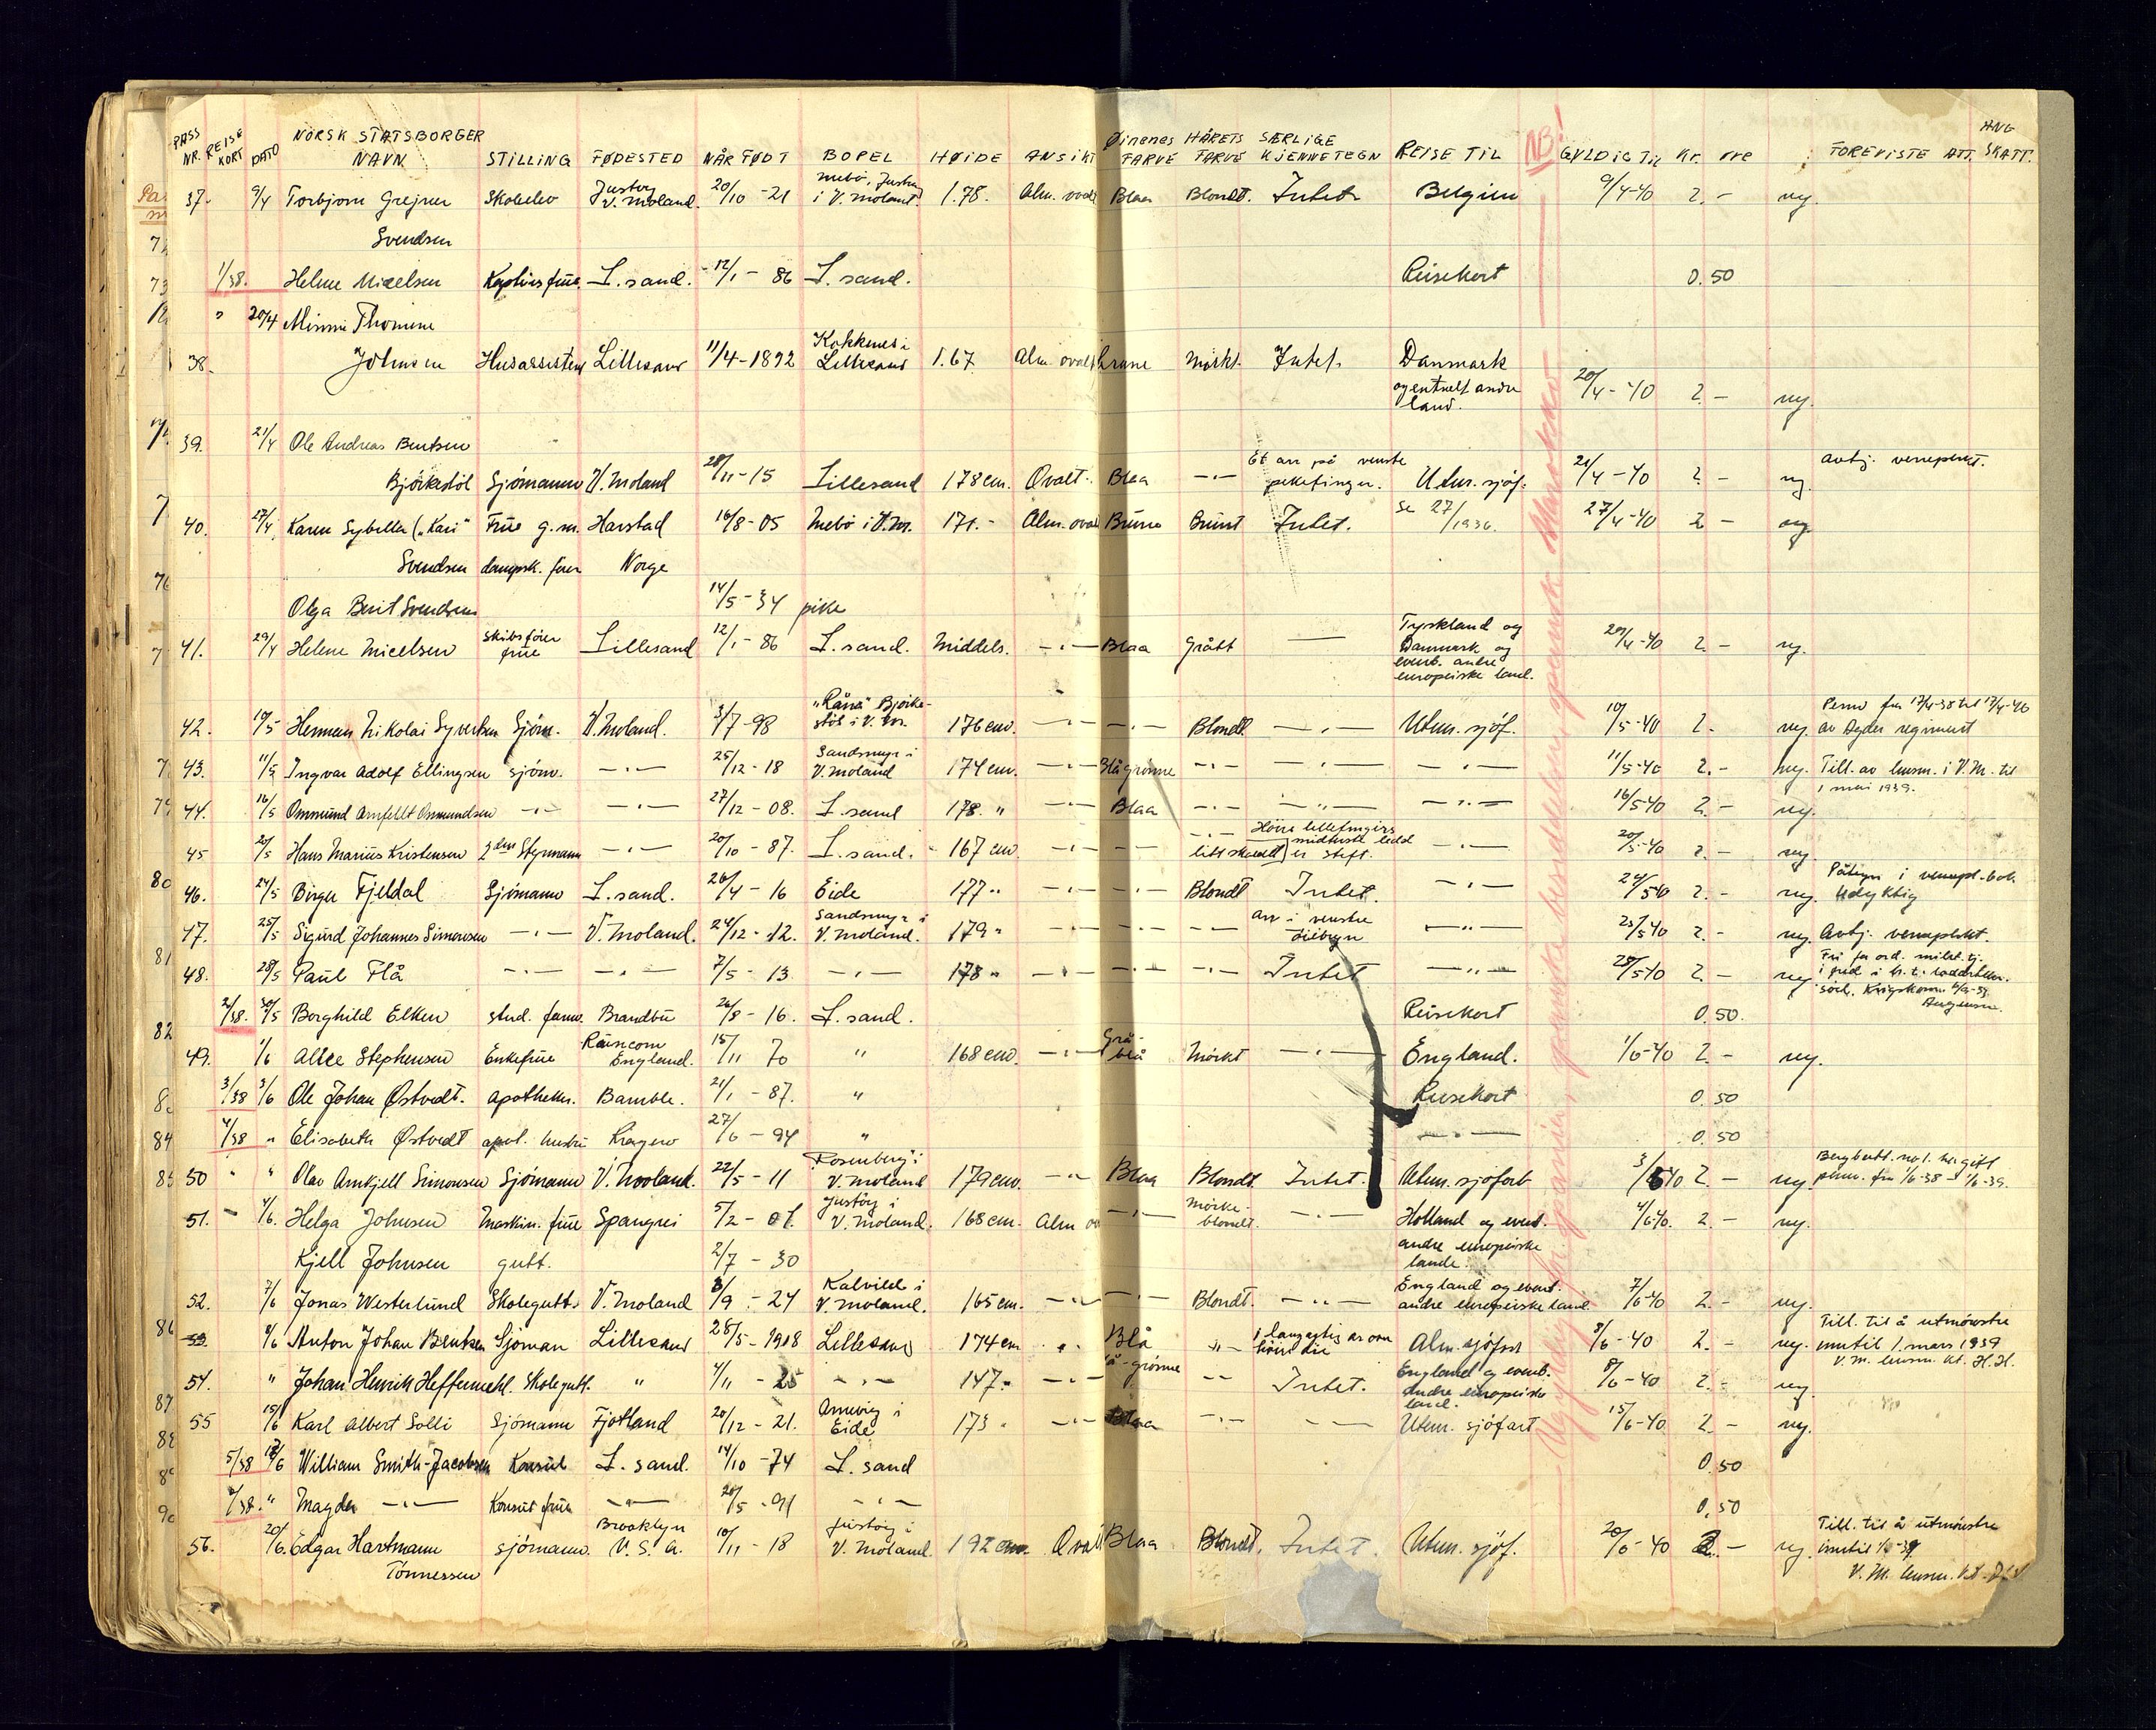 PASS NR. REISE KORT DATO NORSK STATSBORGER NAVN STILLING FØDESTED NÅR FØDT BOPEL HØIDE ANSIKT Øinenes FARVE HÅRETS FARVE SÆRLIGE KJENNETEGN REISE TIL NB! GYLDIG TIL Kr. øre FOREVISTE ATT. ANG SKATT.
37. 9/4 Torbjørn Grejner Skoleelev Justøy V. Moland. 20/10 - 21 Mebø, Justøy i V. Moland 1.78. Alm. ovalt Blaa Blondt. Intet Belgien 9/4-40 2. - ny.
Svendsen
1/38. Helene Micelsen Kapteinsfrue L. sand. 12/1 - 86 L. sand. Reisekort 0.50
" 20/4 Minni Thomine
38. Johnsen Husassistent Lillesand 11/4-1892 Kokkenes i Lillesand 1.67 Alm. ovalt brune Mørkt. Intet. Danmark
og eventuelt andre land. 20/4 - 40 2 - ny.
39. 21/4 Ole Andreas Bentsen
Bjørkestøl Sjømann V. Moland 28/11 - 15 Lillesand 178 cm. Ovalt. Blaa -"- Et arr på venstre pekefinger. Utenr. sjøf. 21/4 - 40 2 - ny. avtj. vernepligt.
40. 27/4 Karen Sybella („Kari" Frue g. m. Harstad 16/8 - 05 Mebø i V.M. 171. - Alm. ovalt Brune Brunt Intet. Se 27/1936. 27/4-40 2 - ny.
Svendsen dampsk. fører Norge
Olga Berit Svendsen 14/5 - 34 pike
41. 29/4 Helene Micelsen Skibsfører frue Lillesand 12/1 - 86 L. sand. Middels. -"- Blaa Grått — Tyskland og Danmark og event. andre europeiske land. 29/4-40 2 - ny.
42. 10/5 Herman Nikolai Syvertsen Sjøm. V. Moland. 3/7 - 98 Bjørkestøl i V. M. 176 cm. -"- -"- Blondt. -"- Utenr. sjøf. 10/5-40 2. ny. Perm. fra 12/4-38 til 12/4-40 av Agder regiment
43. 11/5 Ingvar Adolf Ellingsen sjøm. -"- 25/12 - 18 Sandsmyr i V. Moland 174 cm. -"- Blågrønne -"- -"- -"- 11/5-40 2. - ny. Till. av lensm. i V.M. til 1 mai 1939.
44. 16/5 Ommund Arnfellt Ommundsen -"- -"- 27/12 - 08. L. sand 178 " -"- Blaa -"- -"- -"- 16/5-40 2. - ny.
45 20/5 Hans Marius Kristensen 2den Styrmann -"- 20/10 - 87. L. sand. 167 cm. -"- -"- litt skaldet Høire lillefingers midterste ledd er stift. -"- 20/5-40 2. - ny.
46. 24/5 Birger Fjeldal Sjømann L. sand. 26/4 - 16 Eide 177 " -"- -"- Blondt Intet. -"- 24/5-40 2. - ny. Påtegn i vernepl. bok Udyktig
47. 25/5 Sigurd Johannes Simonsen -"- V. Moland. 24/12 - 12. Sandsmyr i V. Moland. 179 " -"- -"- -"- Arr i venstre øiebryn -"- 25/5-40 2. - ny. Avtj. verneplikt.
48. 28/5 Paul Flå -"- -"- 7/5 - 13. -"- 178 " -"- -"- -"- Intet -"- 28/5-40 2. - ny. Fri for ord. milit. tj. i fred
2/38. 30/5 Borghild Elken stud. farm. Brandbu 26/8 - 16. L. sand. Reisekort 0.50.
49. 1/6 Alice Stephensen Enkefrue Runcorn England. 15/11 70 " 168 cm. -"- Grå-blå Mørkt -"- England. 1/6-40 2. - ny.
3/38 3/6 Ole Johan Østvedt. apotheker. Bamble. 21/1 - 87. " Reisekort 0.50
4/38 " Elisabeth Østvedt apot. hustru Kragerø 27/6 - 94 " -"- 0.50
50 " Olav Arnkjell Simonsen Sjømann V. Moland. 22/5 - 11 Rosenberg i V. Moland 179 cm. -"- Blaa Blondt. Intet. Utenr. sjøfart 3/6-40 2. - ny. perm. fra 1/6-38 - 1/6-39.
51. 4/6. Helga Johnsen Maskin. frue Spangrei 5/2 - 07. Justøy i V. Moland. 168 cm. Alm. ov -"- Mørke-blondt. -"- Holland og event. andre europeiske lande. 4/6-40. 2. - ny.
Kjell Johnsen gutt. 2/7 - 30
52. 7/6 Jonas Westerlund Skolegutt. V. Moland 8/9 - 24 Kalvild i V. Moland. 165 cm. -"- -"- Blondt. -"- England og event. andre europeiske land. 7/6-40 2. - ny.
53. 8/6 Anton Johan Bentsen Sjøman Lillesand 28/5-1918 Lillesand 174 cm " Blå -"- 1 langagtig ar over høire øie Alm. sjøfart 8/6 - 40 2. - ny. Till. til å utmønstre inntil 1. mars 1939 V. M. lensm. kt. H.H.
54. " Johan Henrik Heffermehl. Skolegutt. " 4/11 - 25 -"- 147 " -"- -grønne -"- Intet. England og event. andre europeiske land. 8/6-40 2. - ny.
55 15/6 Karl Albert Solli Sjømann Fjotland 20/12 - 21. Amevig i Eide 173 " -"- Blaa -"- -"- Utenr. sjøfart 15/6-40 2. - ny.
5/38 William Smith-Jacobsen Konsul L. sand. 14/10 - 74 L. sand 0.50
/38. " Magda -"- Konsul frue -"- 20/5 - 91 -"- 0.50
56. 20/6. Edgar Hartmann sjømann. Brooklyn U. S. A. 10/11 - 18 Justøy i V. Moland. 192 cm. Ovalt Blaa Blondt. Intet. Utenr. sjøf. 20/6-40 2. - ny. Till. til å utmønstre inntil V. M. lensm. kt.
Tønnessen